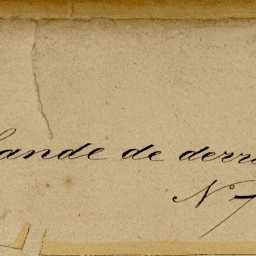 ande de derr
N 7